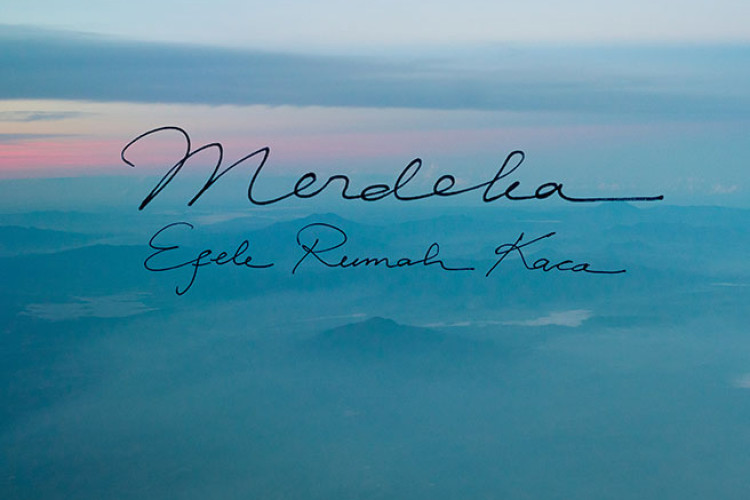 Merdeka
Efek Rumah Kaca